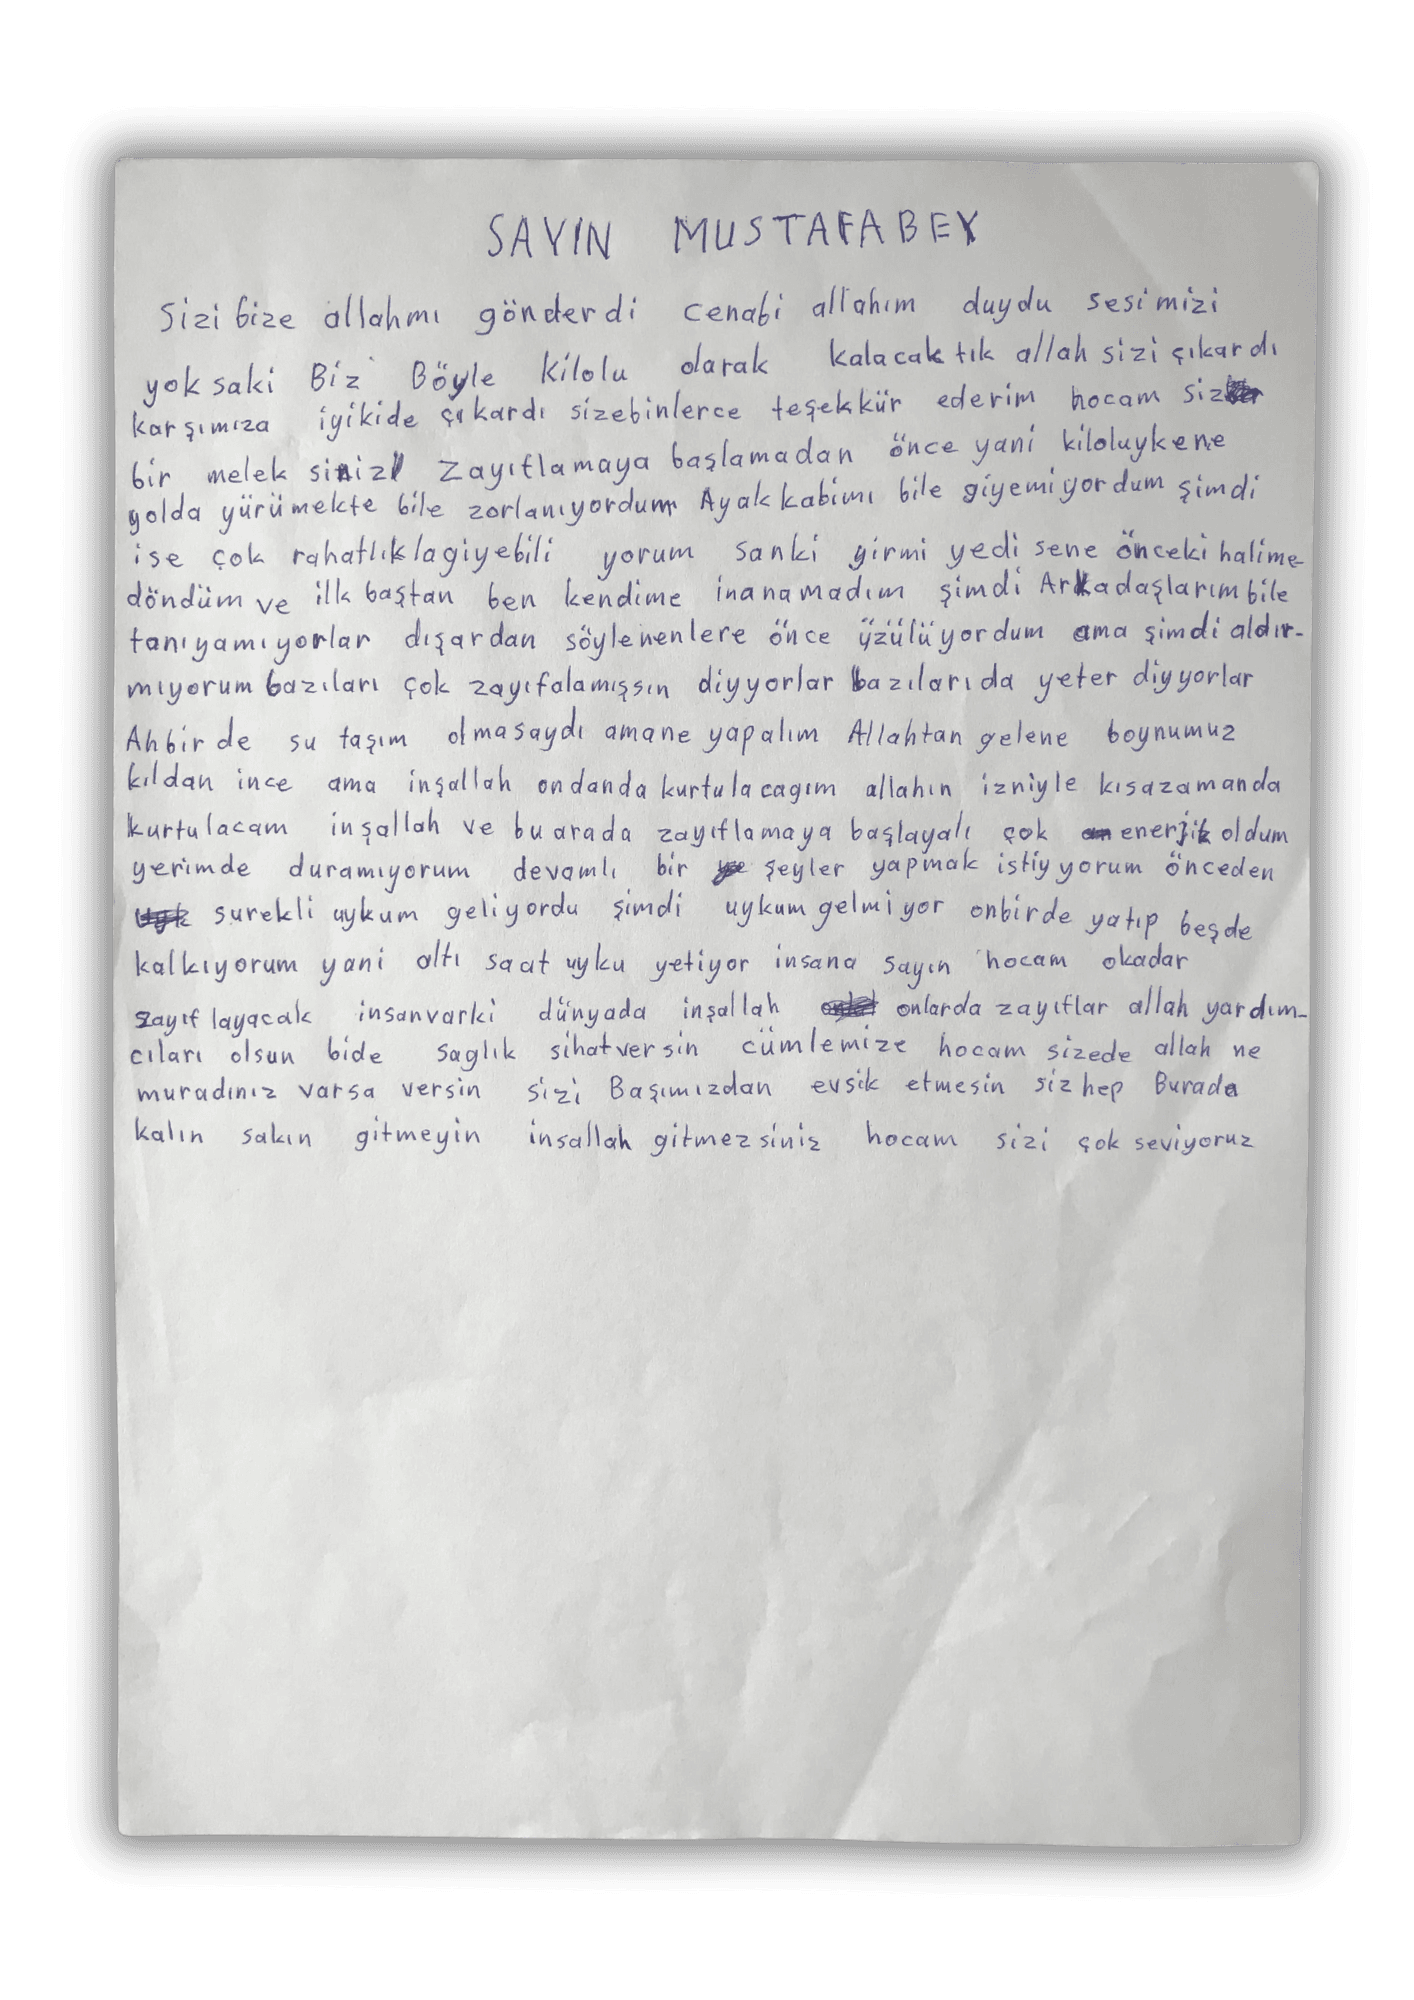 SAYIN MUSTAFA BEY
Sizi bize allahmı gönderdi cenabi allahım duydu sesimizi
yoksaki Biz Böyle kilolu olarak kalacaktık allah sizi çıkardı
karşımıza iyikide çıkardı sizebinlerce teşekkür ederim hocam siz
bir melek siniz Zayıflamaya başlamadan önce yani kiloluykene
yolda yürümekte bile zorlanıyordum Ayakkabimı bile giyemiyordum şimdi
ise çok rahatlıklagiyebili yorum sanki yirmi yedi sene önceki halime
döndüm ve ilk baştan ben kendime inanamadım şimdi Arkadaşlarımbile
tanıyamıyorlar dışardan söylenenlere önce üzülüyordum ama şimdi aldır-
mıyorum bazıları çok zayıfalamışsın diyyorlar bazılarıda yeter diyyorlar
Ahbirde su taşım olmasaydı amane yapalım Allahtan gelene boynumuz
kıldan ince ama inşallah ondanda kurtulacagım allahın izniyle kısazamanda
kurtulacam inşallah ve buarada zayıflamaya başlayalı çok enerjik oldum
yerimde duramıyorum devamlı bir şeyler yapmak istiyyorum önceden
surekli uykum geliyordu şimdi uykum gelmiyor onbirde yatıp beşde
kalkıyorum yani altı saat uyku yetiyor insana sayın hocam okadar
zayıflayacak insanvarki dünyada inşallah onlarda zayıflar allah yardım-
cıları olsun bide saglık sihatversin cümlemize hocam sizede allah ne
muradınız varsa versin sizi Başımızdan evsik etmesin siz hep Burada
kalın sakın gitmeyin insallah gitmezsiniz hocam sizi çok seviyoruz